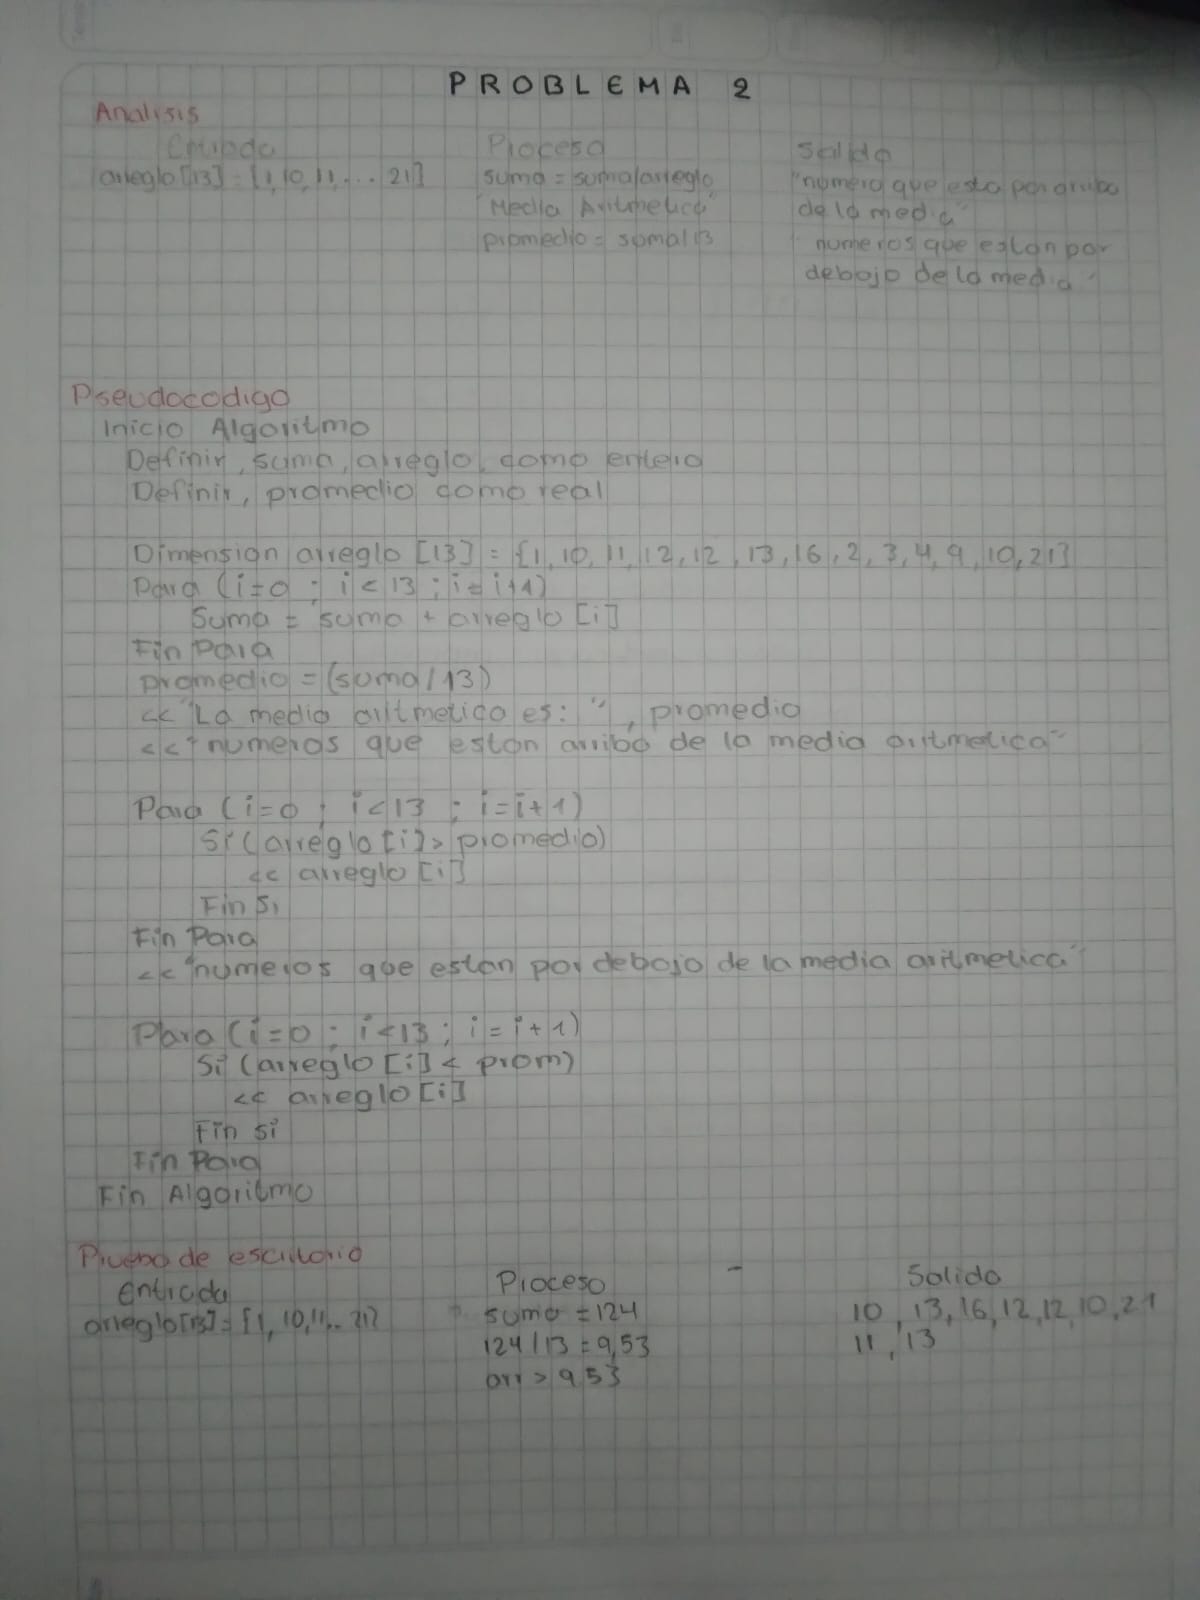 PROBLEMA 2
Analisis
Entrada Proceso Salida
arreglo[13] = [1, 10, 11, ... 21] suma = suma/arreglo "numero que esta por arriba
"Media Aritmetica" de la media"
promedio = suma/13 numeros que estan por
debajo de la media"
Pseudocodigo
Inicio Algoritmo
Definir, suma, arreglo, como entero
Definir, promedio como real
Dimension arreglo [13] = {1, 10, 11, 12, 12, 13, 16, 2, 3, 4, 9, 10, 21}
Para (i=0 ; i<13 ; i=i+1)
Suma = suma + arreglo [i]
Fin Para
promedio = (suma/13)
<< "La media aritmetica es: ", promedio
<< "numeros que estan arriba de la media aritmetica"
Para (i=0 ; i<13 ; i=i+1)
Si (arreglo [i] > promedio)
<< arreglo [i]
Fin Si
Fin Para
<< "numeros que estan por debajo de la media aritmetica"
Para (i=0 ; i<13 ; i=i+1)
Si (arreglo [i] < prom)
<< arreglo [i]
Fin si
Fin Para
Fin Algoritmo
Prueba de escritorio
Entrada Proceso - Salida
arreglo[13] = {1, 10, 11, .. 21} suma = 124 10, 13, 16, 12, 12, 10, 21
124/13 = 9,53 11, 13
arr > 9,53